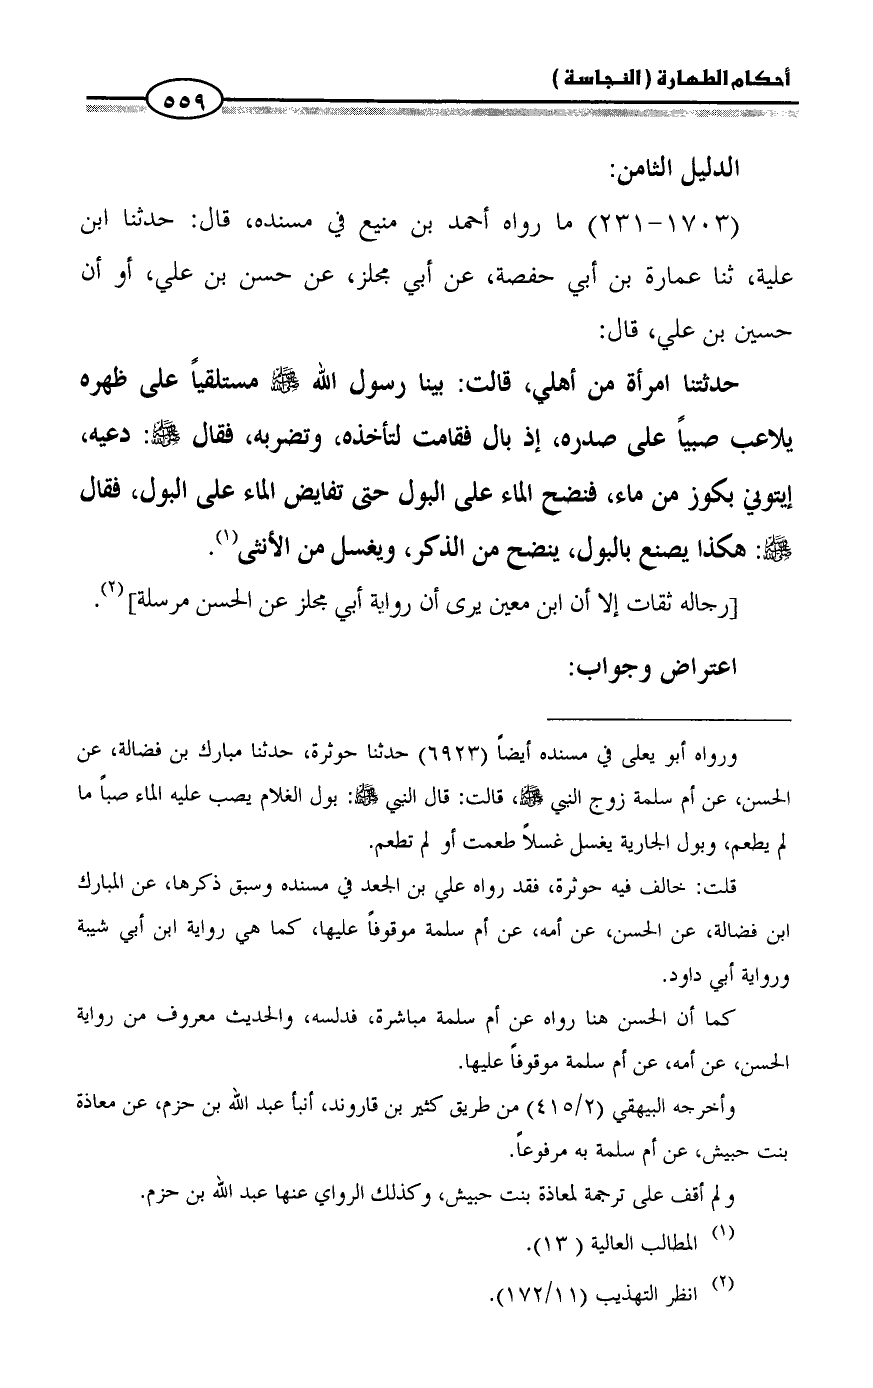 أحكام الطهارة (النجاسة)
٥٥٩
الدليل الثامن:
(١٧٠٣-٢٣١) ما رواه أحمد بن منيع في مسنده، قال: حدثنا ابن
علية، ثنا عمارة بن أبي حفصة، عن أبي مجلز، عن حسن بن علي، أو أن
حسين بن علي، قال:
حدثتنا امرأة من أهلي، قالت: بينا رسول الله ﷺ مستلقياً على ظهره
يلاعب صبياً على صدره، إذ بال فقامت لتأخذه، وتضربه، فقال ﷺ: دعيه،
إيتوني بكوز من ماء، فنضح الماء على البول حتى تفايض الماء على البول، فقال
ﷺ: هكذا يصنع بالبول، ينضح من الذكر، ويغسل من الأنثى(١).
[رجاله ثقات إلا أن ابن معين يرى أن رواية أبي مجلز عن الحسن مرسلة](٢).
اعتراض وجواب:
ورواه أبو يعلى في مسنده أيضاً (٦٩٢٣) حدثنا حوثرة، حدثنا مبارك بن فضالة، عن
الحسن، عن أم سلمة زوج النبي ﷺ، قالت: قال النبي ﷺ: بول الغلام يصب عليه الماء صباً ما
لم يطعم، وبول الجارية يغسل غسلاً طعمت أو لم تطعم.
قلت: خالف فيه حوثرة، فقد رواه علي بن الجعد في مسنده وسبق ذكرها، عن المبارك
ابن فضالة، عن الحسن، عن أمه، عن أم سلمة موقوفاً عليها، كما هي رواية ابن أبي شيبة
ورواية أبي داود.
كما أن الحسن هنا رواه عن أم سلمة مباشرة، فدلسه، والحديث معروف من رواية
الحسن، عن أمه، عن أم سلمة موقوفاً عليها.
وأخرجه البيهقي (٤١٥/٢) من طريق كثير بن قاروند، أنبأ عبد الله بن حزم، عن معاذة
بنت حبيش، عن أم سلمة به مرفوعاً.
ولم أقف على ترجمة لمعاذة بنت حبيش، وكذلك الرواي عنها عبد الله بن حزم.
(١) المطالب العالية ( ١٣).
(٢) انظر التهذيب (١٧٢/١١).